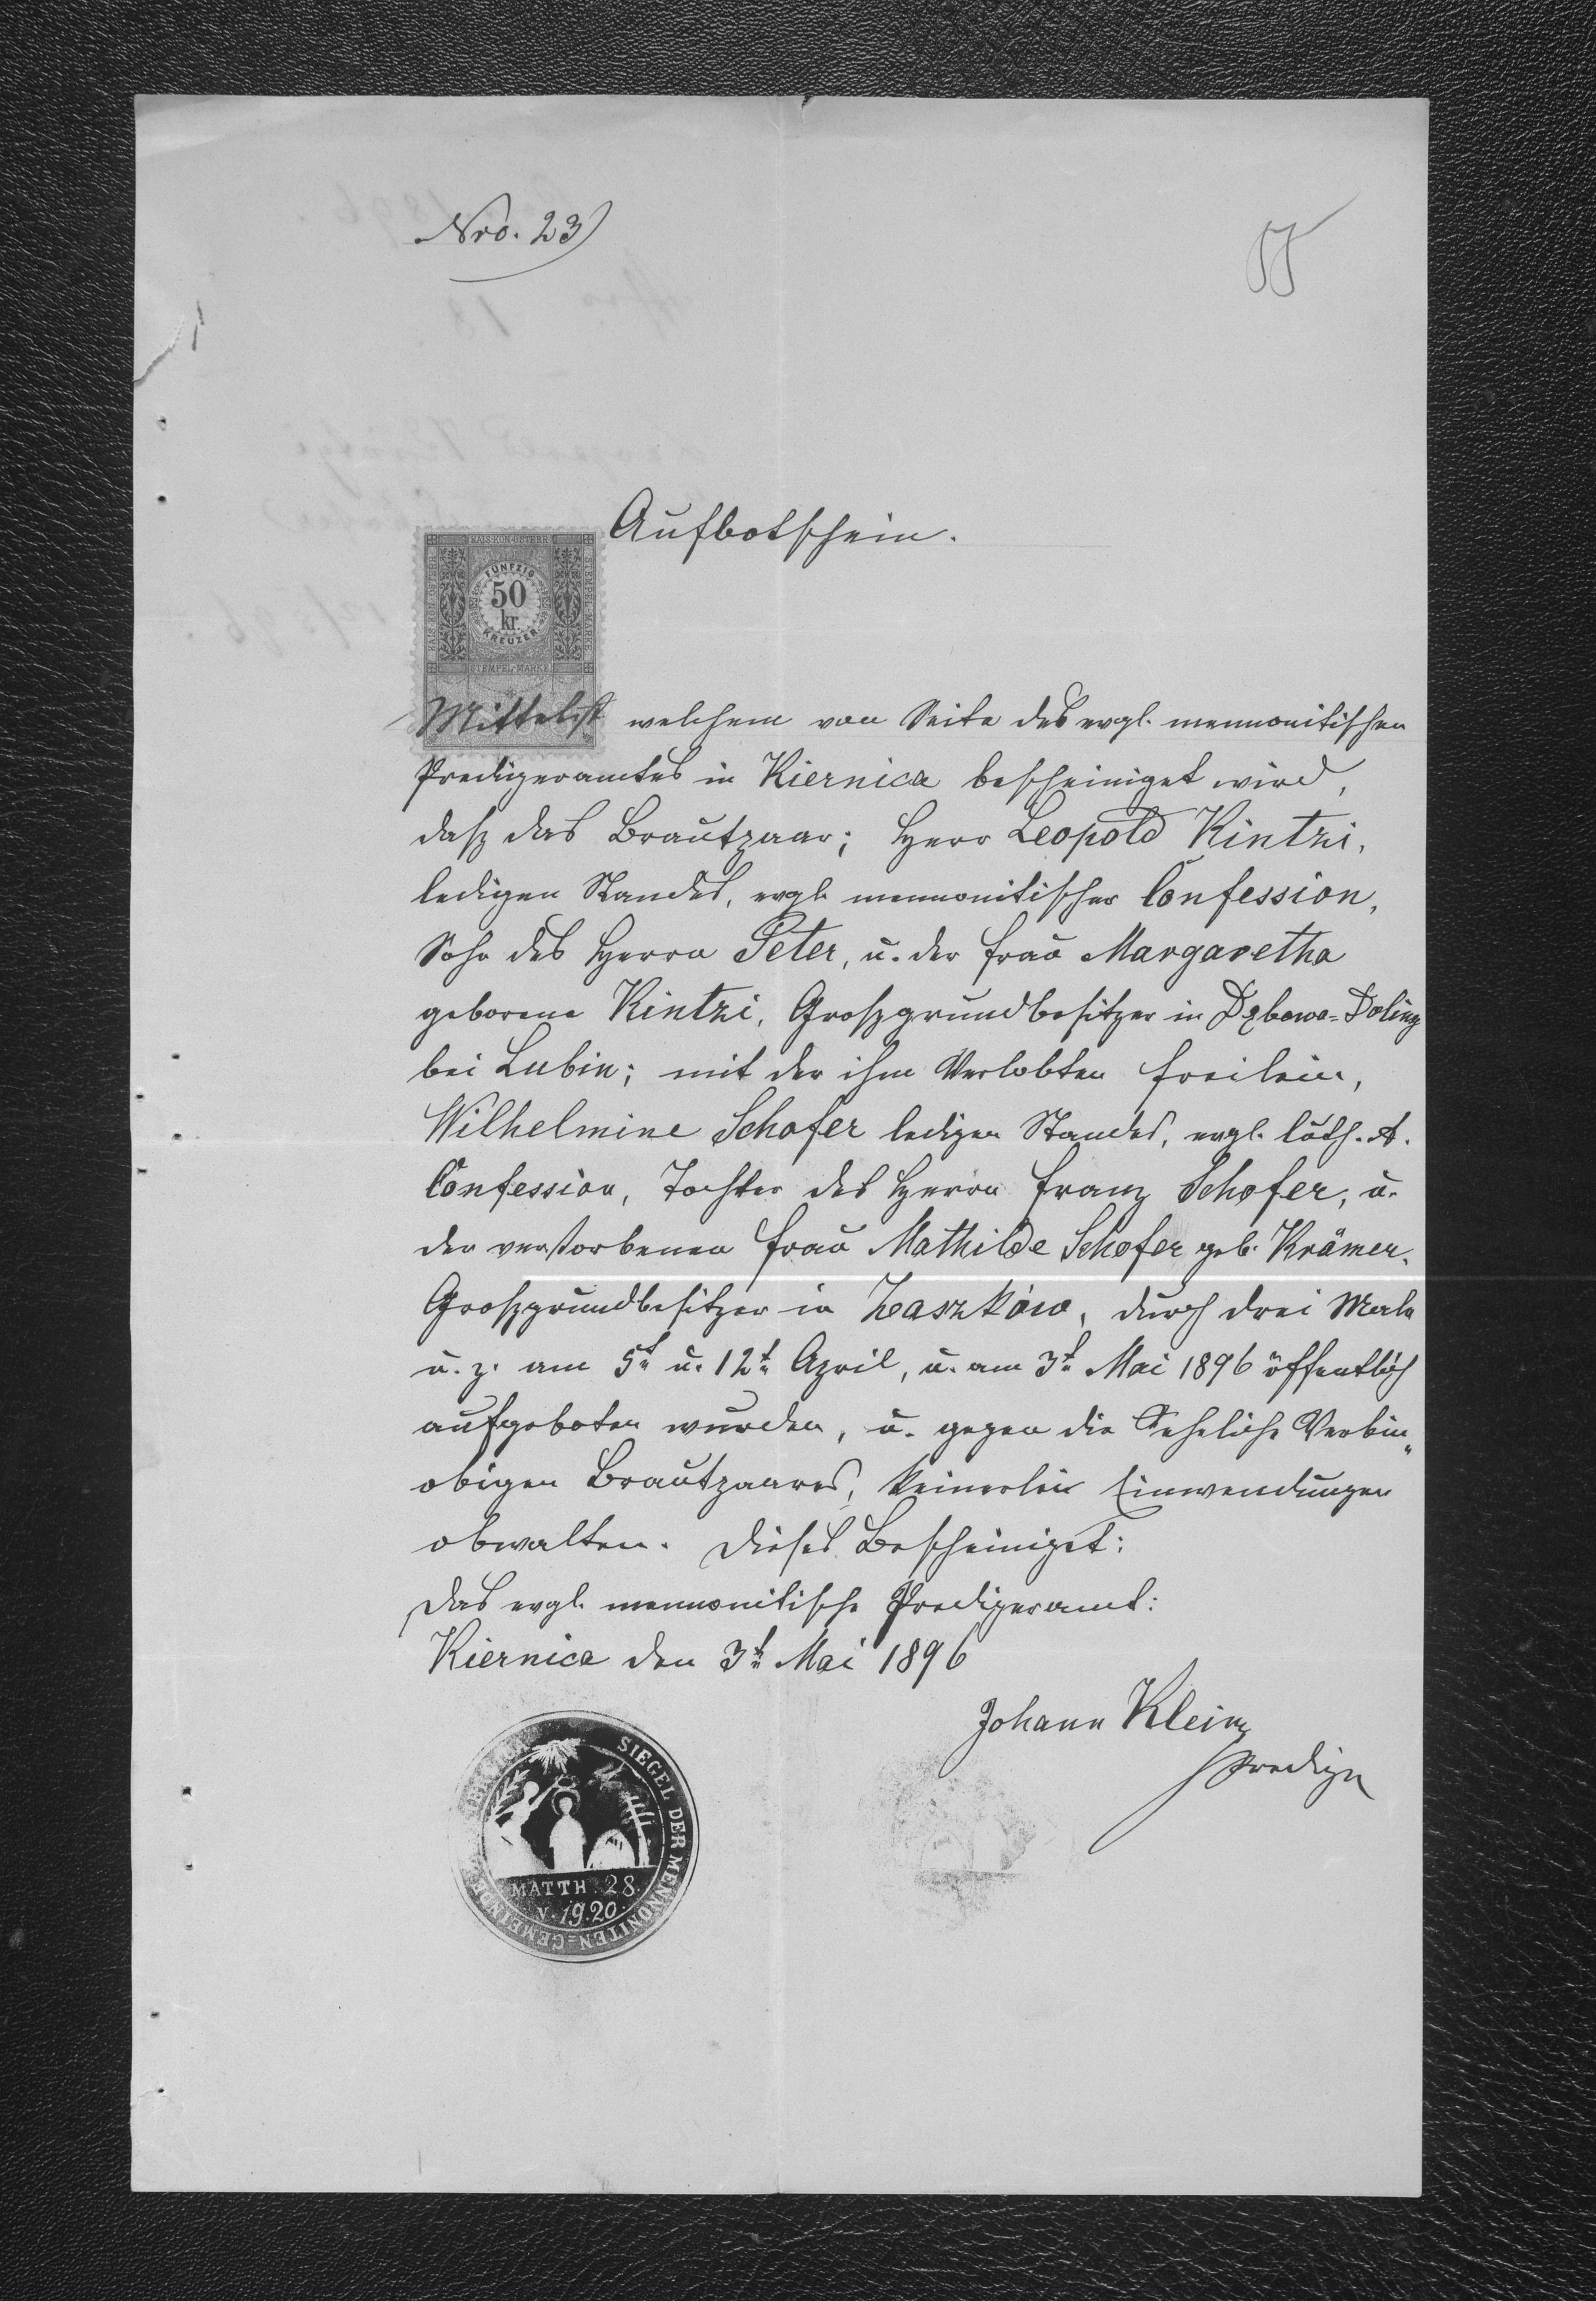 Nro. 23)
55
Aufbotschein.
KAIS. KÖN. ÖSTERR.
FÜNFZIG
50
kr.
KREUZER
STEMPEL-MARKE
Mittelst welchem von Seite des evgl. mennonitischen
Predigeramtes in Kiernica bescheiniget wird,
daß das Brautpaar; Herr Leopold Kintzi,
ledigen Standes, evgl. mennonitischer Confession,
Sohn des Herrn Peter, u. der Frau Margaretha
geborene Kintzi, Großgrundbesitzer in Dąbowa-Doliny
bei Lubin; mit der ihm Verlobten Freilein,
Wilhelmine Schofer ledigen Standes, evgl. luth. A.
Confession, Tochter des Herrn Franz Schofer, u.
der verstorbenen Frau Mathilde Schofer geb. Krämer.
Großgrundbesitzer in Zaszków, durch drei Male
u. z. am 5t u. 12t April, u. am 3t Mai 1896 öffentlich
aufgeboten wurden, u. gegen die Eheliche Verbin„
obigen Brautpaares, keinerlei Einwendungen
obwalten. Dieses Bescheiniget:
Das evgl. mennonitische Predigeramt:
Kiernica den 3t Mai 1896
Johann Klein
Prediger
SIEGEL DER MENNONITEN=GEMEINDE
MATTH. 28.
v. 19.20.